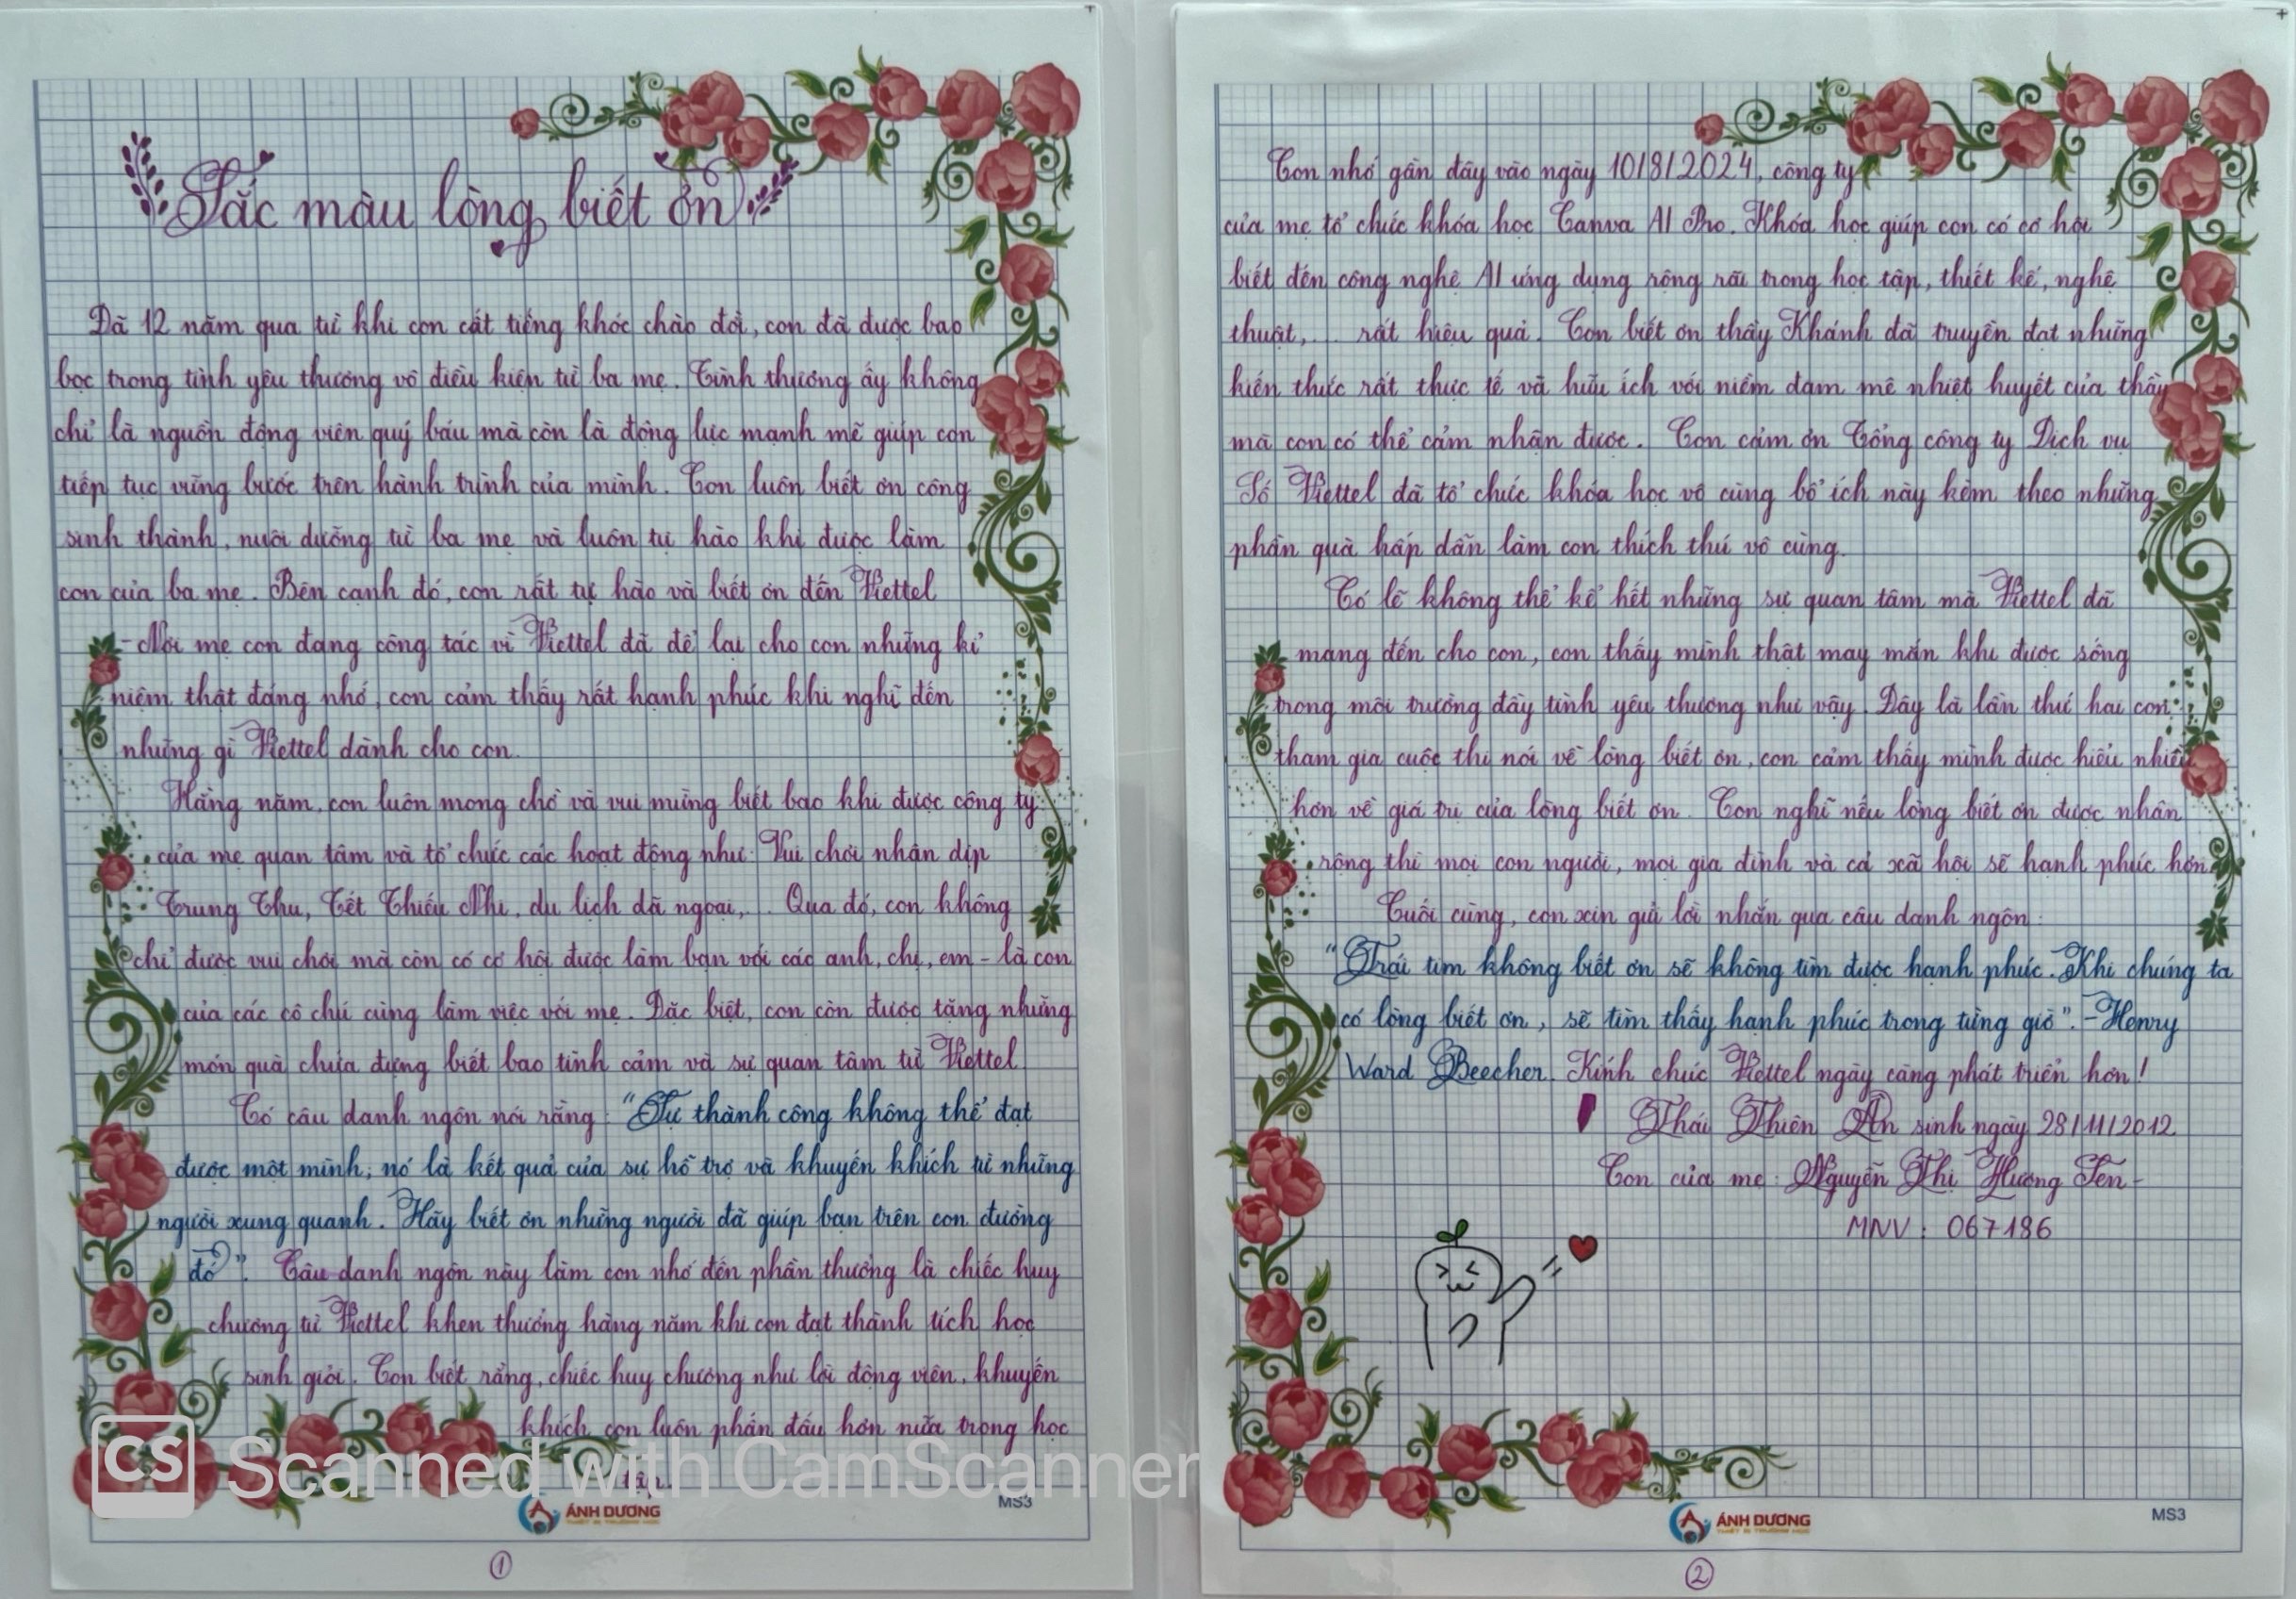 Sắc màu lòng biết ơn
Đã 12 năm qua từ khi con cất tiếng khóc chào đời, con đã được bao
bọc trong tình yêu thương vô điều kiện từ ba mẹ. Tình thương ấy không
chỉ là nguồn động viên quý báu mà còn là động lực mạnh mẽ giúp con
tiếp tục vững bước trên hành trình của mình. Con luôn biết ơn công
sinh thành, nuôi dưỡng từ ba mẹ và luôn tự hào khi được làm
con của ba mẹ. Bên cạnh đó, con rất tự hào và biết ơn đến Viettel
- Nơi mẹ con đang công tác vì Viettel đã để lại cho con những kỉ
niệm thật đáng nhớ, con cảm thấy rất hạnh phúc khi nghĩ đến
những gì Viettel dành cho con.
Hằng năm, con luôn mong chờ và vui mừng biết bao khi được công ty
của mẹ quan tâm và tổ chức các hoạt động như: Vui chơi nhân dịp
Trung Thu, Tết Thiếu Nhi, du lịch dã ngoại,... Qua đó, con không
chỉ được vui chơi mà còn có cơ hội được làm bạn với các anh, chị, em - là con
của các cô chú cùng làm việc với mẹ. Đặc biệt, con còn được tặng những
món quà chứa đựng biết bao tình cảm và sự quan tâm từ Viettel.
Có câu danh ngôn nói rằng: "Sự thành công không thể đạt
được một mình; nó là kết quả của sự hỗ trợ và khuyến khích từ những
người xung quanh. Hãy biết ơn những người đã giúp bạn trên con đường
đó". Câu danh ngôn này làm con nhớ đến phần thưởng là chiếc huy
chương từ Viettel khen thưởng hàng năm khi con đạt thành tích học
sinh giỏi. Con biết rằng, chiếc huy chương như lời động viên, khuyến
khích con luôn phấn đấu hơn nữa trong học
tập.
CS Scanned with CamScanner
ÁNH DƯƠNG
THIẾT BỊ TRƯỜNG HỌC
MS3
1
Con nhớ gần đây vào ngày 10/8/2024, công ty
của mẹ tổ chức khóa học Canva AI Pro. Khóa học giúp con có cơ hội
biết đến công nghệ AI ứng dụng rộng rãi trong học tập, thiết kế, nghệ
thuật,... rất hiệu quả. Con biết ơn thầy Khánh đã truyền đạt những
kiến thức rất thực tế và hữu ích với niềm đam mê nhiệt huyết của thầy
mà con có thể cảm nhận được. Con cảm ơn Tổng công ty Dịch vụ
Số Viettel đã tổ chức khóa học vô cùng bổ ích này kèm theo những
phần quà hấp dẫn làm con thích thú vô cùng.
Có lẽ không thể kể hết những sự quan tâm mà Viettel đã
mang đến cho con, con thấy mình thật may mắn khi được sống
trong môi trường đầy tình yêu thương như vậy. Đây là lần thứ hai con
tham gia cuộc thi nói về lòng biết ơn, con cảm thấy mình được hiểu nhiều
hơn về giá trị của lòng biết ơn. Con nghĩ nếu lòng biết ơn được nhân
rộng thì mọi con người, mọi gia đình và cả xã hội sẽ hạnh phúc hơn.
Cuối cùng, con xin gửi lời nhắn qua câu danh ngôn:
"Trái tim không biết ơn sẽ không tìm được hạnh phúc. Khi chúng ta
có lòng biết ơn, sẽ tìm thấy hạnh phúc trong từng giờ". - Henry
Ward Beecher. Kính chúc Viettel ngày càng phát triển hơn!
Thái Thiên Ân sinh ngày 28/11/2012
Con của mẹ: Nguyễn Thị Hương Sen -
MNV: 067186
ÁNH DƯƠNG
THIẾT BỊ TRƯỜNG HỌC
MS3
2